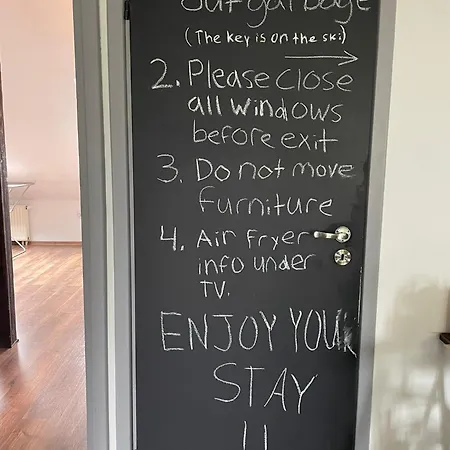 out garbage
(The key is on the ski)
2. Please close
all windows
before exit
3. Do not move
furniture
4. Air fryer
info under
TV.
ENJOY YOUR
STAY